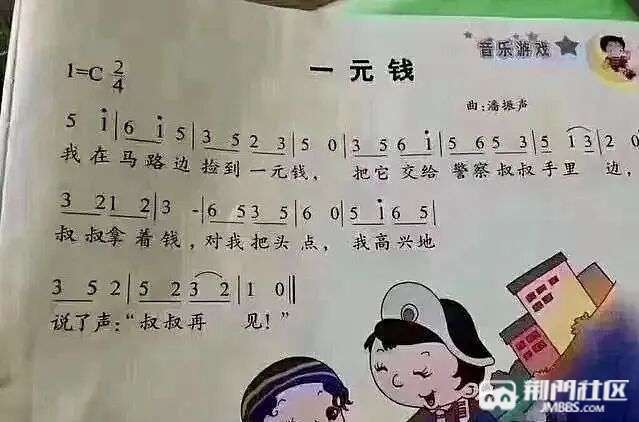 音乐游戏
1=C 2/4
一元钱
曲:潘振声
5 i|6 i 5|3 5 2 3|5 0|3 5 6 i|5 6 5 3|5 1 3|2 0
我在马路边捡到一元钱, 把它交给警察叔叔手里边,
3 2 1 2|3 -|6 5 3 5|6 0|5 i 6 5|
叔叔拿着钱,对我把头点, 我高兴地
3 5 2|5 2 3 2|1 0‖
说了声:“叔叔再 见!”
荆門社区
JMBBS.COM